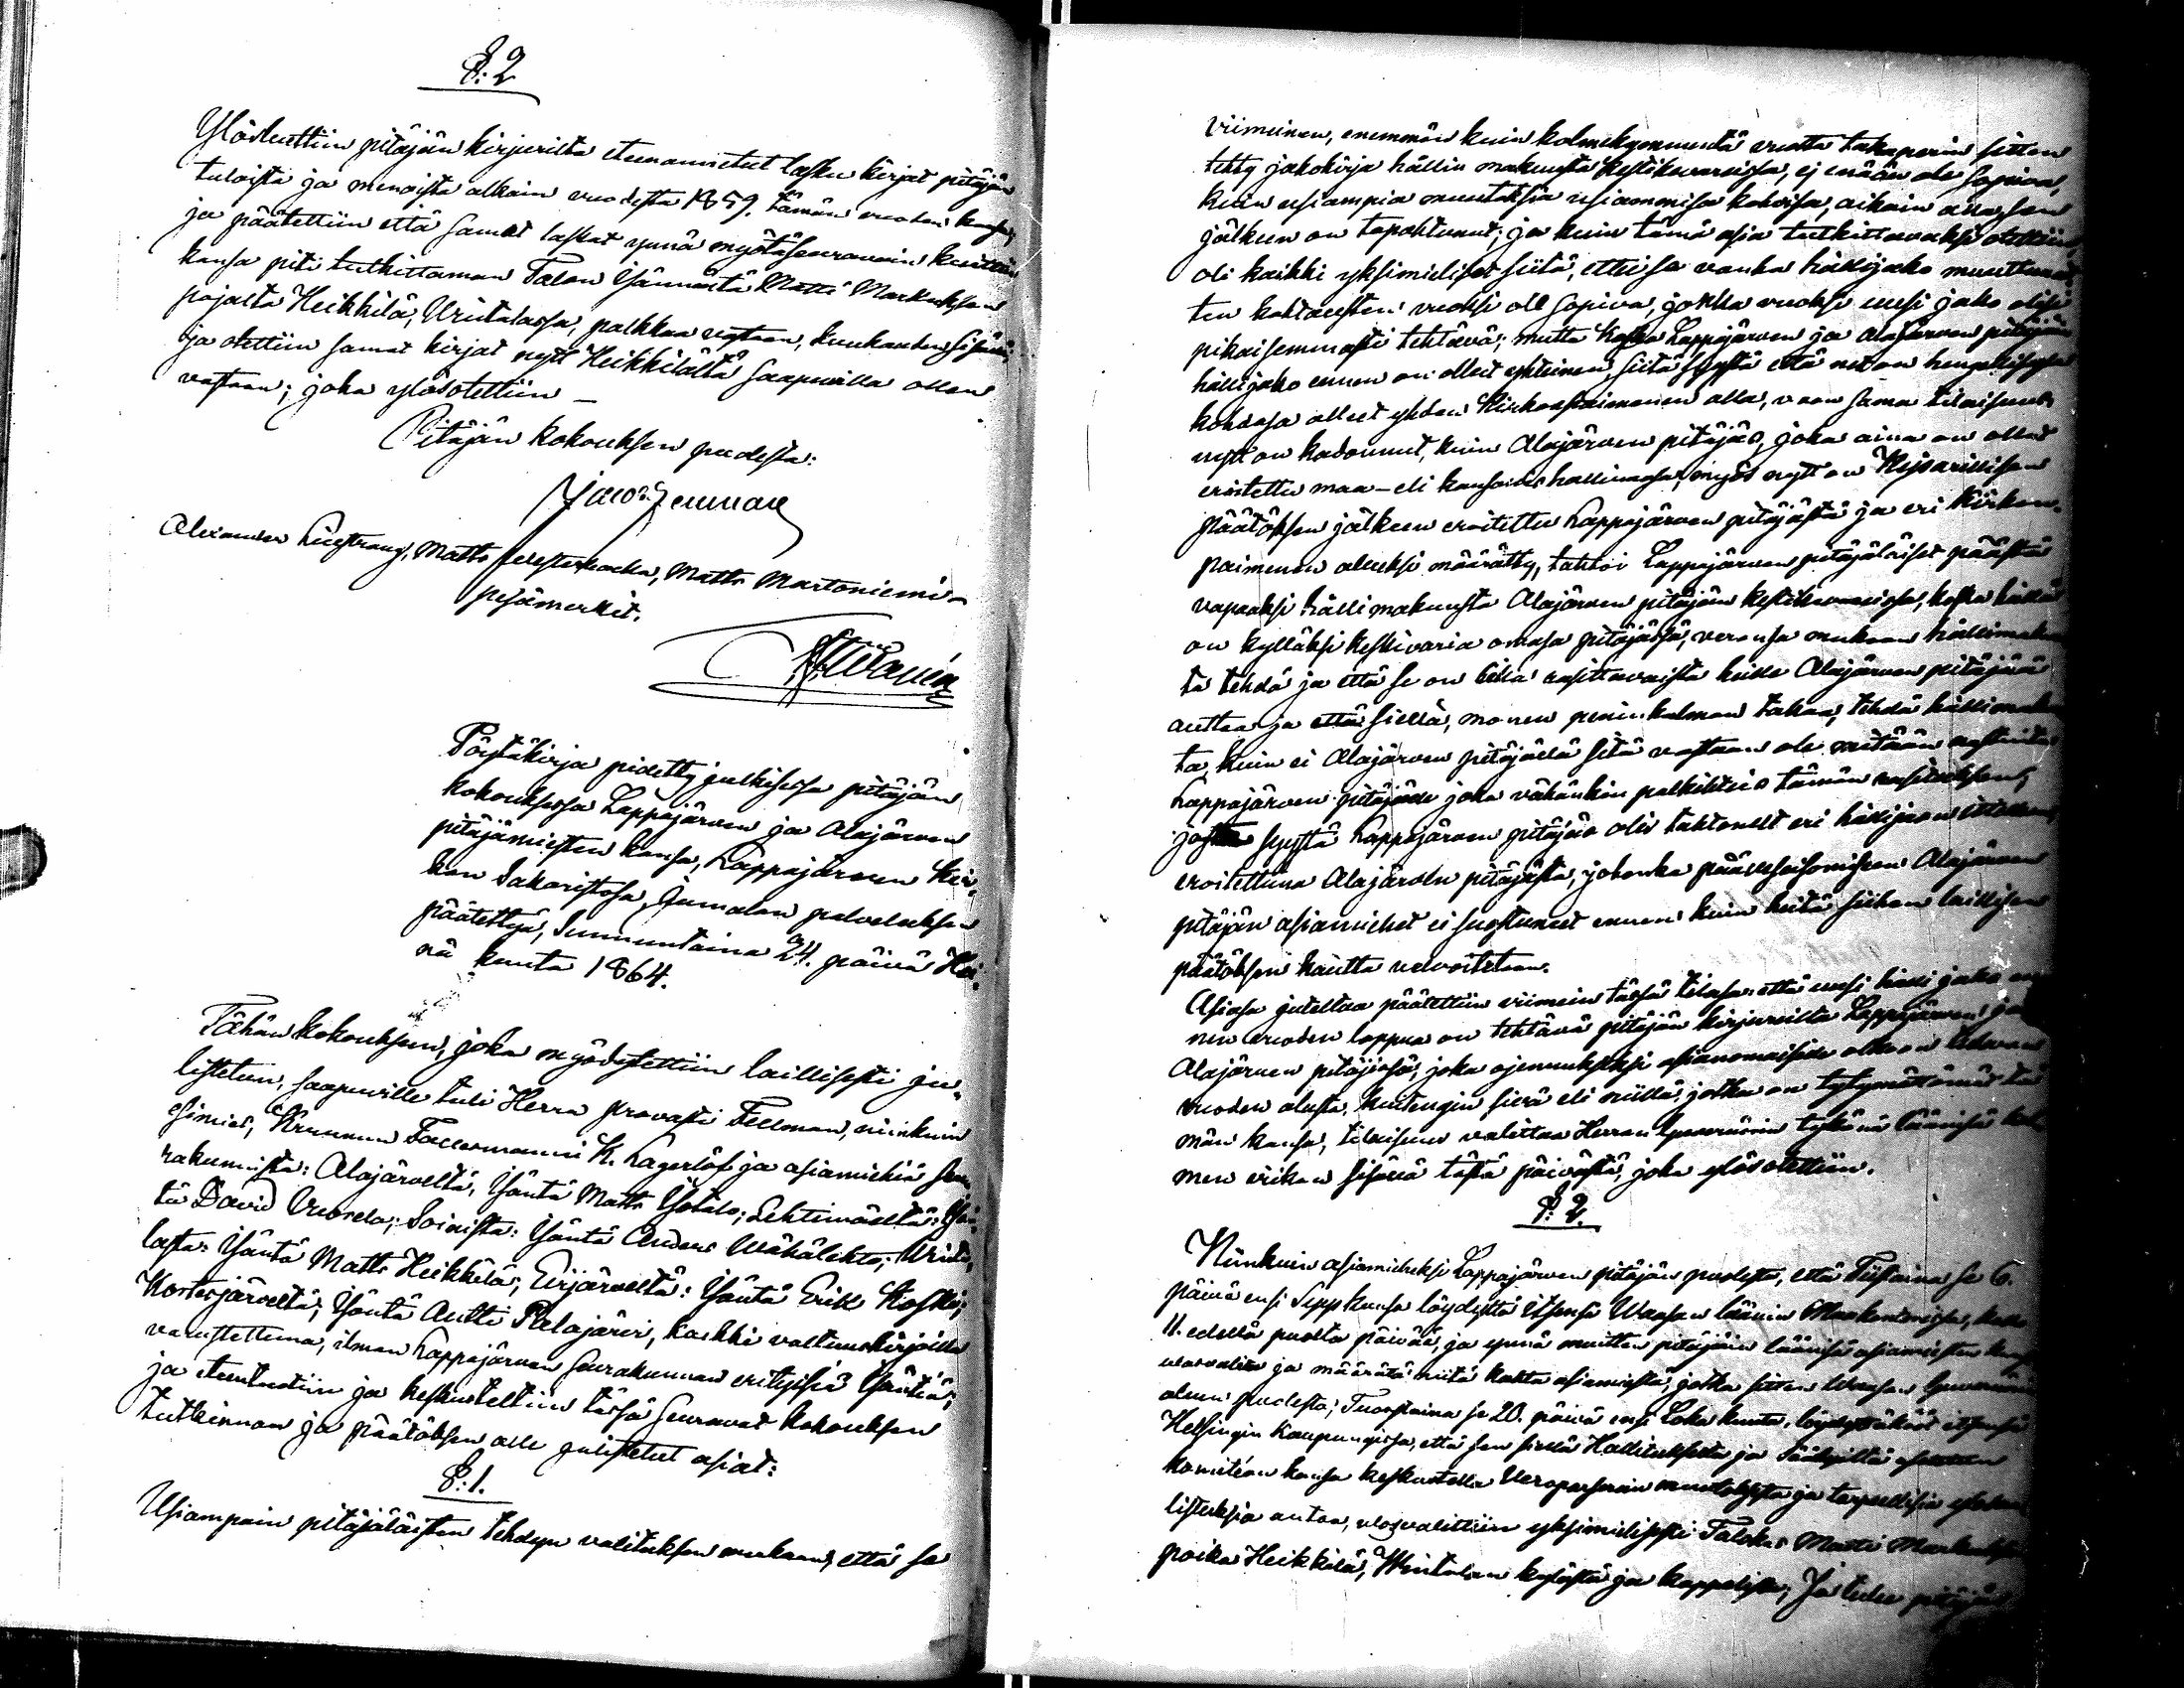 §: 2
Ylösluettiin pitäjän kirjurilta eteenannetut lasku kirjat pitäjän
tuloista ja menoista alkain vuodesta 1859. tämän vuoden
ja päätettiin että samat laskut ynnä myötäseuravain kuittein
kansa piti tutkittaman Talon Isännältä Matti Markuksen
pojalta Heikkilä, Vintalassa, palkkaa vastaan, kuukauden sisään,
ja otettiin samat kirjat nyt Heikkilältä saapuvilla ollen
vastaan; joka ylösotettiin –
Pitäjän kokouksen puolesta:
Jacob Fellman
Alexander, Matts, Matts Martoniemi –
puumerkit.
Pöytäkirja pidetty julkisessa pitäjän
kokouksessa Lappajärven ja Alajärven
pitäjämiesten kansa, Lappajärven Kir-
kon Sakaristosa, Jumalan palveluksen
päätettyä, Sunnuntaina 24. päivä Hei-
nä kuuta 1864.
Tähän kokouksen, joka myödytettiin laillisesti ju-
listetun, saapuville tuli Herra provasti Fellman, niinkuin
esimies, Kruunun Fallesmanni K. Lagerlöf ja asiamiehiä seu-
rakunnista: Alajärveltä, Isäntä Matts Ylötalo; Lehtimäeltä: Isän-
tä David Vuorela; Soinista: Isäntä Anders Wähälehto; Winta-
lasta: Isäntä Matts Heikkilä; Evijärveltä: Isäntä Erik Koski;
Kortesjärveltä; Isäntä Antti Palajärvi, kaikki valtuuskirjoilla
varustettuna, ilman Lappajärven Seurakunnan erityisiä Isäntiä;
ja eteentuotiin ja keskusteltiin tässä seuravat kokouksen
tutkinnon ja päätöksen alle julistetut asiat:
§: 1.
Usiampain pitäjäläisten tehdyn valituksen mukaan, että se
viimeinen, enemmän kuin kolmekymmentä vuotta takaperin sitten
tehty jakokirja hällin makuusta kestikievareissa, ej enään ole sopiva,
kuin usiampia muutoksia usiammisa kohdisa, aikain alla sen
jälkeen on tapahtunut; ja kuin tämä asia tutkittavaksi otettiin
oli kaikki yksimieliset siitä, ettei se vanha hällijako muuttunei-
ten kohtausten vuoksi ole sopiva, jonka vuoksi uusi jako olisi
pikaisemmasti tehtävä; mutta koska Lappajärven ja Alajärven pitäjäin
hällijako ennen on ollut yhteinen, siitä syystä että net on hengellisessä
kohdasa olleet yhden Kirkonpaimenen alla, vaan sama tilaisuus
nyt on kadonnut, kuin Alajärven pitäjäs, joka aina on ollut
eroitettu maa-eli kansan hallinnosa, myös nyt on Keisarillisen
päätöksen jälkeen eroitettu Lappajärven pitäjästä ja eri Kirkon-
paimenen alueksi määrätty, tahtoi Lappajärven pitäjäläiset päästä
vapaaksi hällimakuusta Alajärven pitäjän kestikievareissa, koska heillä
on kylläksi kestivaria omasa pitäjässä, veronsa mukaan hällimakuu-
ta tehdä ja että se on liika rasittavaista heille Alajärven pitäjää
auttaa ja että siellä, monen peninkulman takaa, tehdä hällimakuu-
ta, kuin ei Alajärven pitäjällä sitä vastaan ole mitään
Lappajärven pitäjälle joka vähänkin palkitsis tämän rasituksen,
josta syystä Lappajärven pitäjäs olis tahtonut eri hällijaon
eroitettuna Alajärven pitäjästä, johonka päällesaisomiseen Alajärven
pitäjän asiamiehet ei suostuneet ennen kuin heitä siihen laillisen
päätöksen kautta velvoitetaan.
Asiasa juteltua päätettiin viimein tässä tilasa että uusi hälli jako en-
nen vuoden loppua on tehtävä pitäjän kirjureilta Lappajärven ja
Alajärven pitäjissä, joka ojennukseksi asianomaisille olkoon tulevan
vuoden alusta, kuitengin sivä eli niillä, jotka on tytymättömät tä-
män kansa, tilaisuus valittaa Herran Guvernörin tykönä läänisä
men viikon sisällä tästä päivästä, joka ylösotettiin.
§: 2.
Niinkuin asiamieheksi Lappajärven pitäjän puolesta, että Tiistaina se 6.
päivä ensi Syys kuusa löydyttä itsensä Waasan läänin
11. edellä puolta päivää, ja ynnä muitten pitäjäin läänisä asiamiesten
uloovalita ja määrätä niitä kahta asiamiestä, jotka sitten Waasan Guvernemen-
alven puolesta; Tuorstaina se 20. päivä ensi Loka kuuta, löydyttäköt itsensä
Helsingin Kaupungissa, että sen siellä Hallituksesta ja Säädyiltä asetetun
komitéan kansa keskustella Veroparseelein muutoksista ja tarpeellisia
listuksia antaa, ulosvalittiin yksimielisesti Talokas Matti Markuksen
poika Heikkilä, Wintalan kylästä ja kappelista; Ja tulee pitäjän